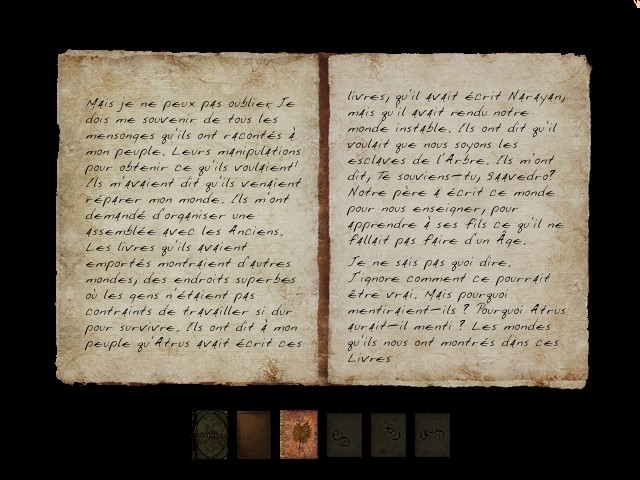 Mais je ne peux pas oublier. Je
dois me souvenir de tous les
mensonges qu'ils ont racontés à
mon peuple. Leurs manipulations
pour obtenir ce qu'ils voulaient!
Ils m'avaient dit qu'ils venaient
réparer mon monde. Ils m'ont
demandé d'organiser une
assemblée avec les Anciens.
Les livres qu'ils avaient
emportés montraient d'autres
mondes, des endroits superbes
où les gens n'étaient pas
contraints de travailler si dur
pour survivre. Ils ont dit à mon
peuple qu'Atrus avait écrit ces
livres, qu'il avait écrit Narayan,
mais qu'il avait rendu notre
monde instable. Ils ont dit qu'il
voulait que nous soyons les
esclaves de l'Arbre. Ils m'ont
dit, Te souviens-tu, Saavedro?
Notre père a écrit ce monde
pour nous enseigner, pour
apprendre à ses fils ce qu'il ne
fallait pas faire d'un Âge.
Je ne sais pas quoi dire.
J'ignore comment ce pourrait
être vrai. Mais pourquoi
mentiraient-ils ? Pourquoi Atrus
aurait-il menti ? Les mondes
qu'ils nous ont montrés dans ces
Livres